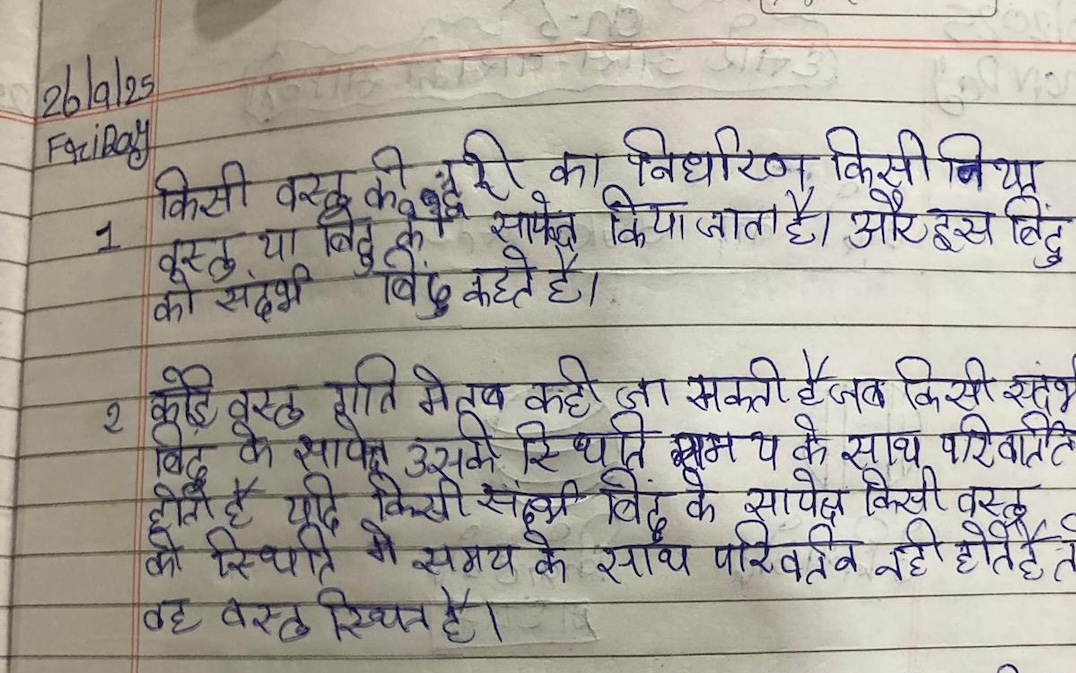 26/9/25
FriDay
किसी वस्तु की दूरी का निर्धारण किसी
1 वस्तु या बिंदु के सापेक्ष किया जाता है। और इस बिंदु
को संदर्भ बिंदु कहते है।
2 कोई वस्तु गति मे तब कही जा सकती है जब किसी संदर्भ
बिंदु के सापेक्ष उसकी स्थिति समय के साथ परिवर्तित
होती है यदि किसी संदर्भ बिंदु के सापेक्ष किसी वस्तु
की स्थिति मे समय के साथ परिवर्तन नही होते है
वह वस्तु स्थित है।